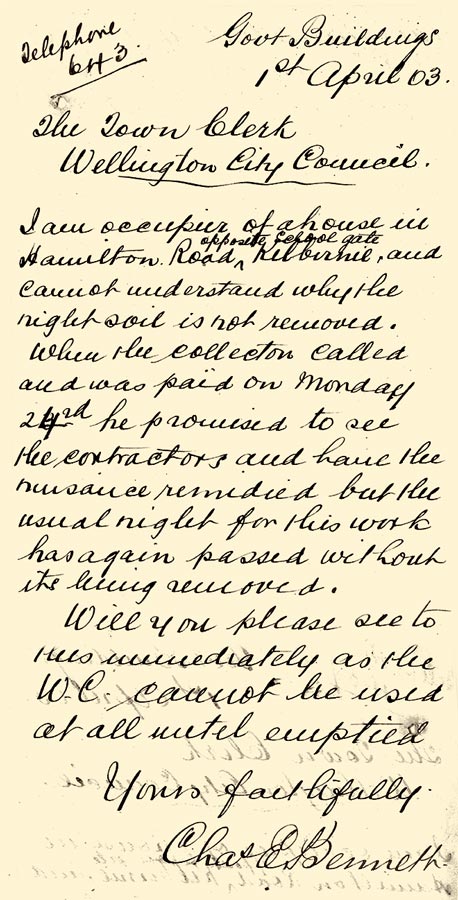 Telephone
643.
Govt Buildings
1st April 03.
The Town Clerk
Wellington City Council.
I am occupier of a house in
opposite School gate
Hamilton Road, Kilbirnie, and
cannot understand why the
night soil is not removed.
When the collector called
and was paid on Monday
24rd he promised to see
the contractors and have the
nuisance remidied but the
usual night for this work
has again passed without
its being removed.
Will you please see to
this immediately as the
W.C. cannot be used
at all until emptied
Yours faithfully.
Chas E. Bennett.